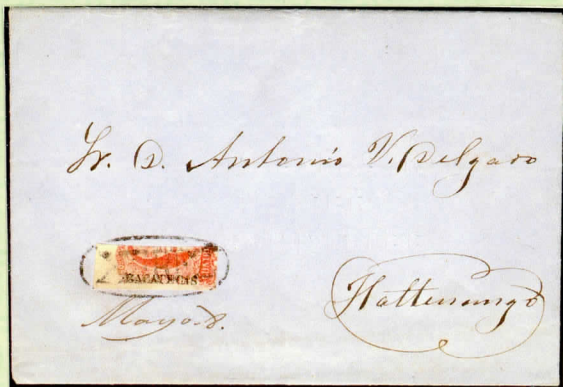 Sr. D. Antonio V. Delgado
ZACATECAS
Mayo 8.
Tlaltenango